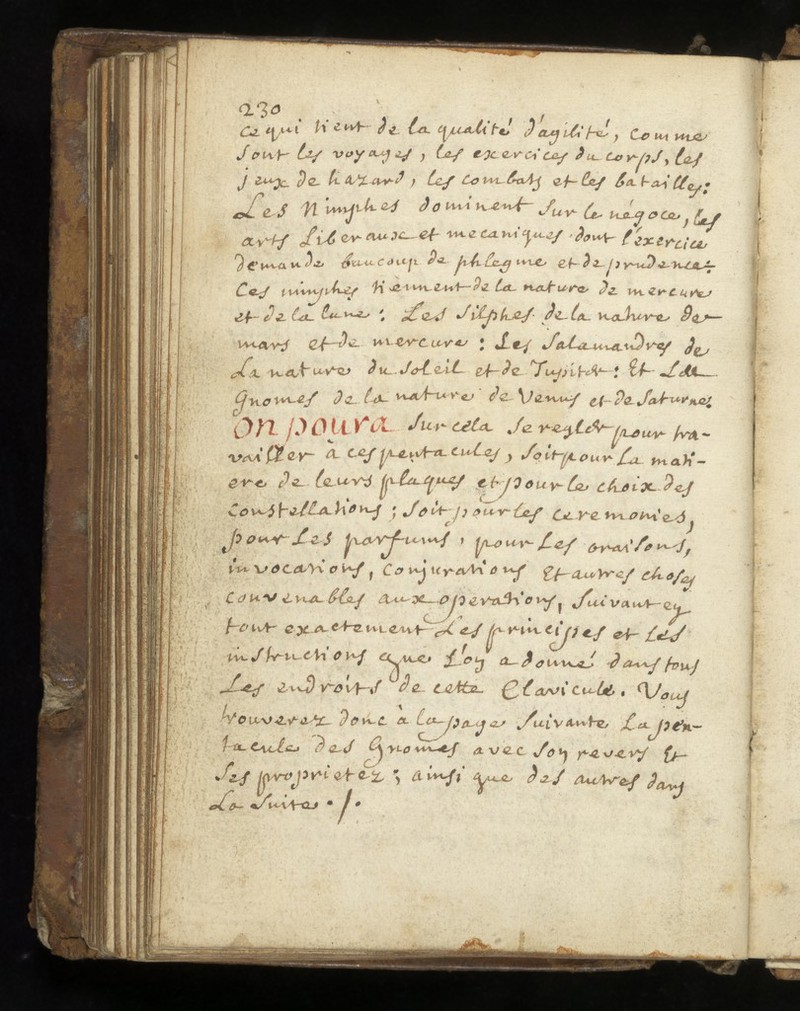 230
ce qui tient de la qualité d'agilité, comme
sont les voyages, les exercices du corps, les
jeux de hazard, les combats et les batailles:
Les Nimphes dominent sur le négoce, les
arts Liberaux et mecaniques dont l'exercice
demande baucoup de phlegme et de prudence:
Ces nimphes tiennent de la nature de mercure
et de la lune: Les silphes de la nature de
mars et de mercure: Les salamandres de
La nature du soleil et de Jupiter: Et Les
Gnomes de la nature de Venus et de Saturne.
On poura sur cela se regler pour tra-
vailler à ces pentacules, soit pour La mati-
ere de leurs plaques et pour le choix des
Constellations; soit pour les ceremonies,
pour Les parfums, pour Les oraisons,
invocations, conjurations Et autres choses
convenables aux operations, suivant en
tout exactement Les principes et Les
instructions que L'on a donné dans tous
Les endroits de cette Clavicule. Vous
trouverez donc à la page suivante La pen-
tacule des Gnomes avec son revers Et
ses proprietez; ainsi que des autres dans
La suite./.